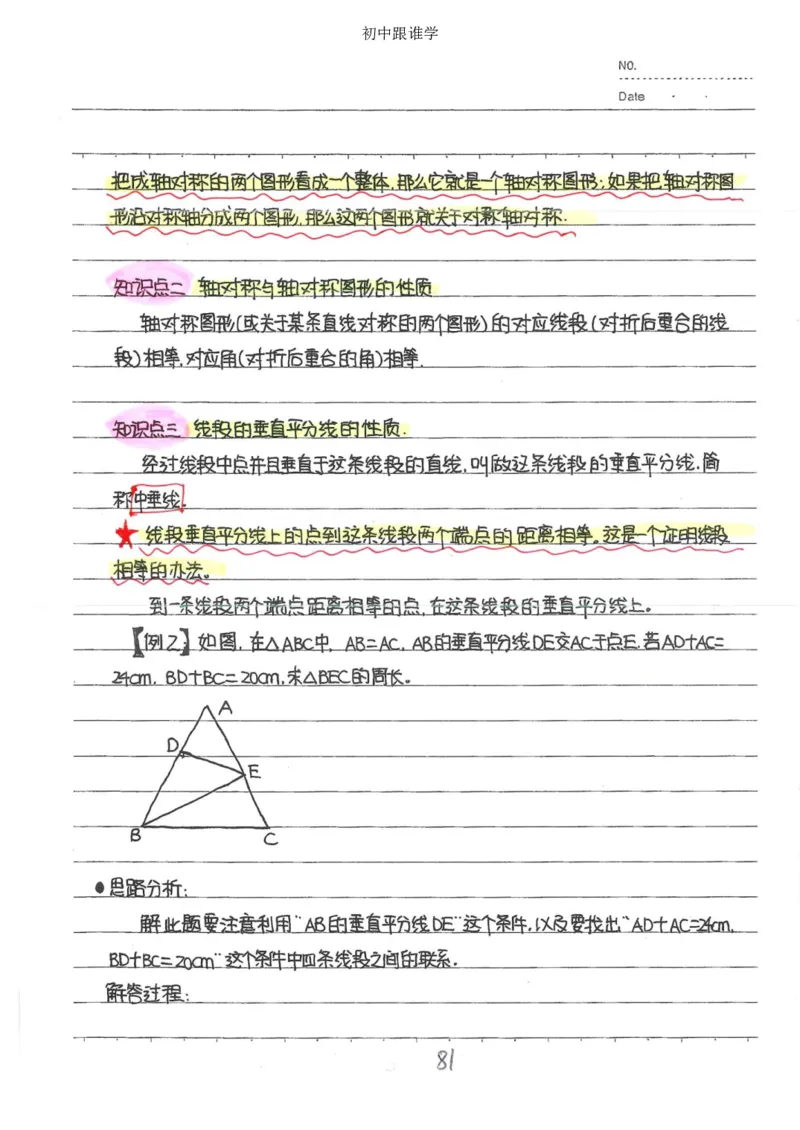 初中跟谁学
NO.
Date
把成轴对称的两个图形看成一个整体,那么它就是一个轴对称图形;如果把轴对称图
形沿对称轴分成两个图形,那么这两个图形就关于对称轴对称.
知识点二 轴对称与轴对称图形的性质
轴对称图形(或关于某条直线对称的两个图形)的对应线段(对折后重合的线
段)相等,对应角(对折后重合的角)相等.
知识点三 线段的垂直平分线的性质.
经过线段中点并且垂直于这条线段的直线,叫做这条线段的垂直平分线.简
称中垂线.
★ 线段垂直平分线上的点到这条线段两个端点的距离相等。这是一个证明线段
相等的办法。
到一条线段两个端点距离相等的点,在这条线段的垂直平分线上。
【例2】如图,在△ABC中, AB=AC, AB的垂直平分线DE交AC于点E,若AD+AC=
24cm, BD+BC=20cm,求△BEC的周长。
A
D
E
B
C
●思路分析:
解此题要注意利用"AB的垂直平分线DE"这个条件,以及要找出"AD+AC=24cm,
BD+BC=20cm"这个条件中四条线段之间的联系.
解答过程:
81